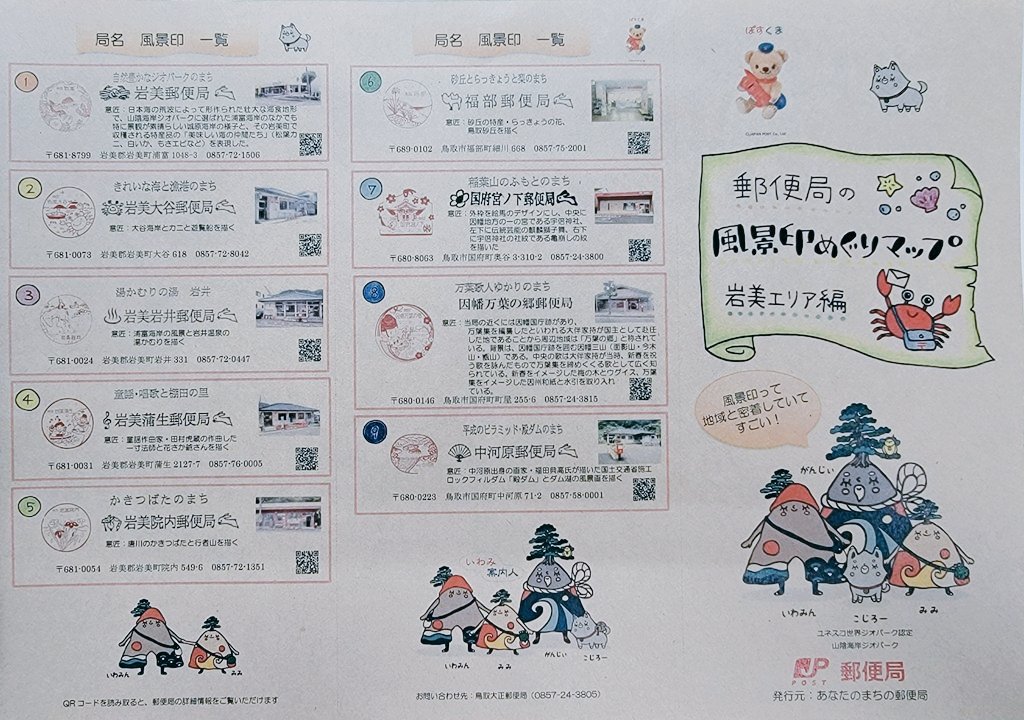 局名 風景印 一覧
1
自然豊かなジオパークのまち
岩美郵便局
意匠：日本海の荒波によって形作られた壮大な海食地形
で、山陰海岸ジオパークに選ばれた浦富海岸のなかでも
特に景観が素晴らしい城原海岸の様子と、その岩美町で
収穫される特産品の「美味しい海の仲間たち」（松葉ガ
ニ、白いか、もさエビなど）を表現した。
〒681-8799 岩美郡岩美町浦富1048-3 0857-72-1506
2
きれいな海と漁港のまち
岩美大谷郵便局
意匠：大谷海岸とカニと遊覧船を描く
〒681-0073 岩美郡岩美町大谷618 0857-72-8042
3
湯かむりの湯 岩井
岩美岩井郵便局
意匠：浦富海岸の風景と岩井温泉の
湯かむりを描く
〒681-0024 岩美郡岩美町岩井331 0857-72-0447
4
童謡・唱歌と棚田の里
岩美蒲生郵便局
意匠：童謡作曲家・田村虎蔵の作曲した
一寸法師と花さか爺さんを描く
〒681-0031 岩美郡岩美町蒲生2127-7 0857-76-0005
5
かきつばたのまち
岩美院内郵便局
意匠：唐川のかきつばたと行者山を描く
〒681-0054 岩美郡岩美町院内549-6 0857-72-1351
いわみん
みみ
QRコードを読み取ると、郵便局の詳細情報をご覧いただけます
局名 風景印 一覧
ぽすくま
6
砂丘とらっきょうと梨のまち
福部郵便局
意匠：砂丘の特産・らっきょうの花、
鳥取砂丘を描く
〒689-0102 鳥取市福部町細川668 0857-75-2001
7
稲葉山のふもとのまち
国府宮ノ下郵便局
意匠：外枠を絵馬のデザインにし、中央に
因幡地方の一の宮である宇倍神社、
左下に伝統芸能の麒麟獅子舞、右下
に宇倍神社の社紋である亀崩しの紋
を描いた
〒680-8063 鳥取市国府町奥谷3-310-2 0857-24-3800
8
万葉歌人ゆかりのまち
因幡万葉の郷郵便局
意匠：当局の近くには因幡国庁跡があり、
万葉集を編纂したといわれる大伴家持が国主として赴任
した地であることから周辺地域は「万葉の郷」と称されて
いる。背景は、因幡国庁跡を囲む因幡三山（面影山・今木
山・甑山）である。中央の歌は大伴家持が当時、新春を祝
う歌を詠んだもので万葉集を締めくくる歌として広く知
られている。新春をイメージした梅の木とウグイス、万葉
集をイメージした因州和紙と水引を取り入れ
ている。
〒680-0146 鳥取市国府町町屋255-6 0857-24-3815
9
平成のピラミッド・殿ダムのまち
中河原郵便局
意匠：中河原出身の画家・福田典高氏が描いた国土交通省施工
ロックフィルダム「殿ダム」とダム湖の風景画を描く
〒680-0223 鳥取市国府町中河原71-2 0857-58-0001
いわみ
案内人
いわみん
みみ
がんじぃ
こじろー
お問い合わせ先：鳥取大正郵便局（0857-24-3805）
ぽすくま
©JAPAN POST Co., Ltd.
郵便局の
風景印めぐりマップ
岩美エリア編
風景印って
地域と密着していて
すごい！
がんじぃ
いわみん
こじろー
みみ
ユネスコ世界ジオパーク認定
山陰海岸ジオパーク
JP POST 郵便局
発行元：あなたのまちの郵便局